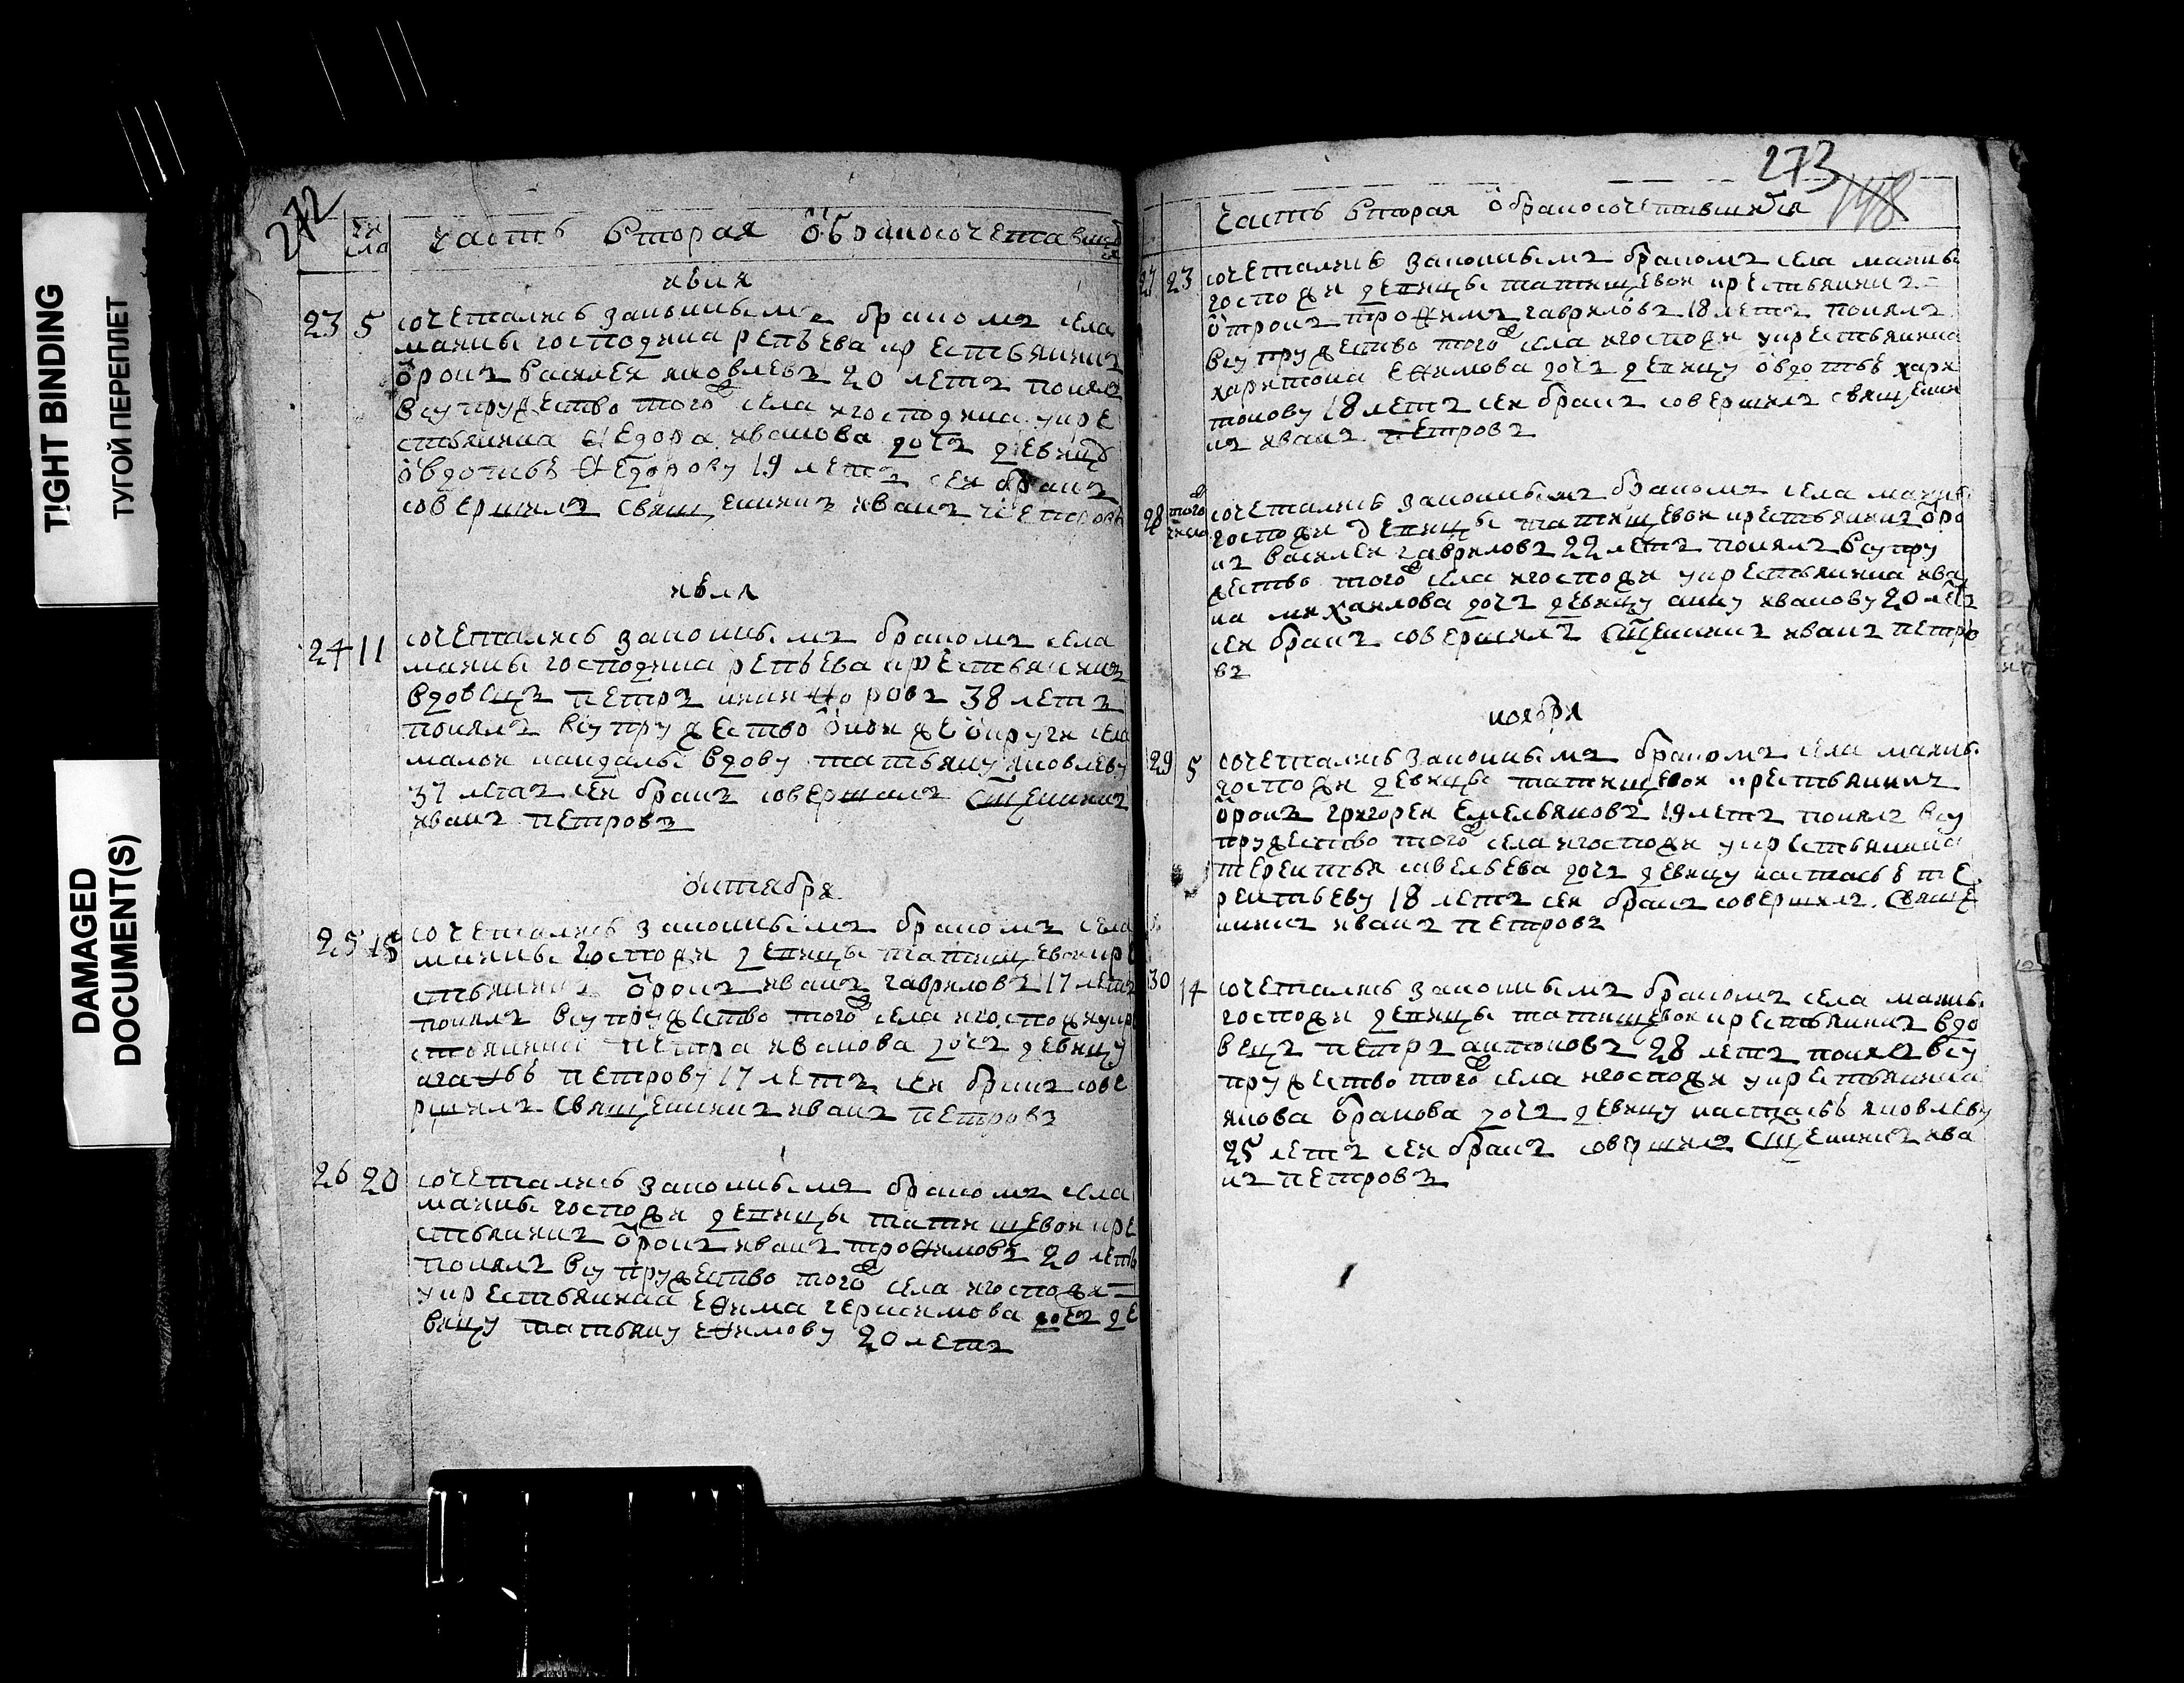 TIGHT BINDING
ТУГОЙ ПЕРЕПЛЕТ
DAMAGED
DOCUMENT(S)
272
чи
сла
часть вторая о бракосочетавшихся
июня
23 5 сочетались законнымъ бракомъ села
маины господина репьева крестьянинъ
отрокъ василеи яковлевъ 20 летъ понялъ
всупружество того села и господина у кре
стьянина федора иванова дочъ девицу
овдотью федорову 19 летъ сеи бракъ
совершилъ священникъ иванъ петровъ
июля
24 11 сочетались законнымъ бракомъ села
маины господина репьева крестьянинъ
вдовецъ петръ никифоровъ 38 летъ
понялъ всупружество оной же округи села
малои кандалы вдову татьяну яковлеву
37 летъ сеи бракъ совершилъ сщенникъ
иванъ петровъ
октября
25 18 сочетались законнымъ бракомъ села
маины госпожи девицы татищевои кре
стьянинъ отрокъ иванъ гавриловъ 17 летъ
понялъ всупружество того села и госпожи у кре
стьянина петра иванова дочъ девицу
агафью петрову 17 летъ сеи бракъ сове
ршилъ священникъ иванъ петровъ
26 20 сочетались законнымъ бракомъ села
маины госпожи девицы татищевои кре
стьянинъ отрокъ иванъ трофимовъ 20 летъ
понялъ всупружество того села и госпожи
у крестьянина ефима герасимова дочъ де
вицу татьяну ефимову 20 летъ
273
148
часть вторая о бракосочетавшихся
27 23 сочетались законнымъ бракомъ села маины
госпожи девицы татищевои крестьянинъ
отрокъ трофимъ гавриловъ 18 летъ понялъ
всупружество того села и госпожи у крестьянина
харитона ефимова дочъ девицу овдотью хари
тонову 18 летъ сеи бракъ совершилъ священни
къ иванъ петровъ
28 того числа сочетались законнымъ бракомъ села маины
госпожи девицы татищевои крестьянинъ отро
къ василеи гавриловъ 22 летъ понялъ всупру
жество того села и госпожи у крестьянина ива
на михаилова дочъ девицу анну иванову 20 летъ
сеи бракъ совершилъ сщенникъ иванъ петро
въ
ноября
29 5 сочетались законнымъ бракомъ села маины
госпожи девицы татищевои крестьянинъ
отрокъ григореи емельяновъ 19 летъ понялъ всу
пружество того села и госпожи у крестьянина
терентья савельева дочъ девицу настасью те
рентьеву 18 летъ сеи бракъ совершилъ свяще
нникъ иванъ петровъ
30 14 сочетались законнымъ бракомъ села маины
госпожи девицы татищевои крестьянинъ вдо
вецъ петръ антоновъ 28 летъ понялъ всу
пружество того села и госпожи у крестьянина
якова дочъ девицу настасью яковлеву
25 летъ сеи бракъ совершилъ сщенникъ ива
нъ петровъ